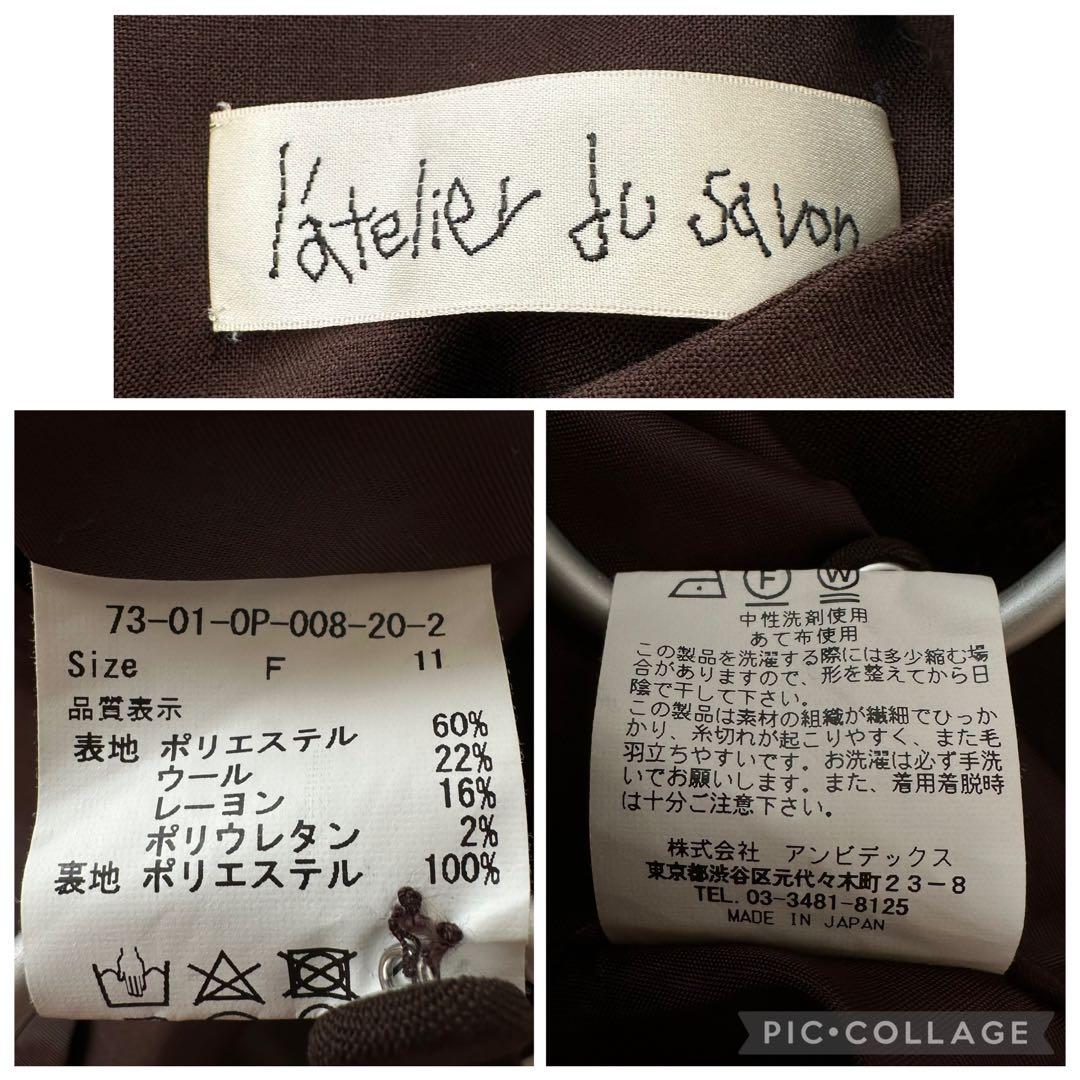 l'atelier du savon
73-01-OP-008-20-2
Size F 11
品質表示
表地 ポリエステル 60%
ウール 22%
レーヨン 16%
ポリウレタン 2%
裏地 ポリエステル 100%
F W
中性洗剤使用
あて布使用
この製品を洗濯する際には多少縮む場
合がありますので、形を整えてから日
陰で干して下さい。
この製品は素材の組織が繊細でひっか
かり、糸切れが起こりやすく、また毛
羽立ちやすいです。お洗濯は必ず手洗
いでお願いします。また、着用着脱時
は十分ご注意下さい。
株式会社 アンビデックス
東京都渋谷区元代々木町23-8
TEL. 03-3481-8125
MADE IN JAPAN
PIC•COLLAGE